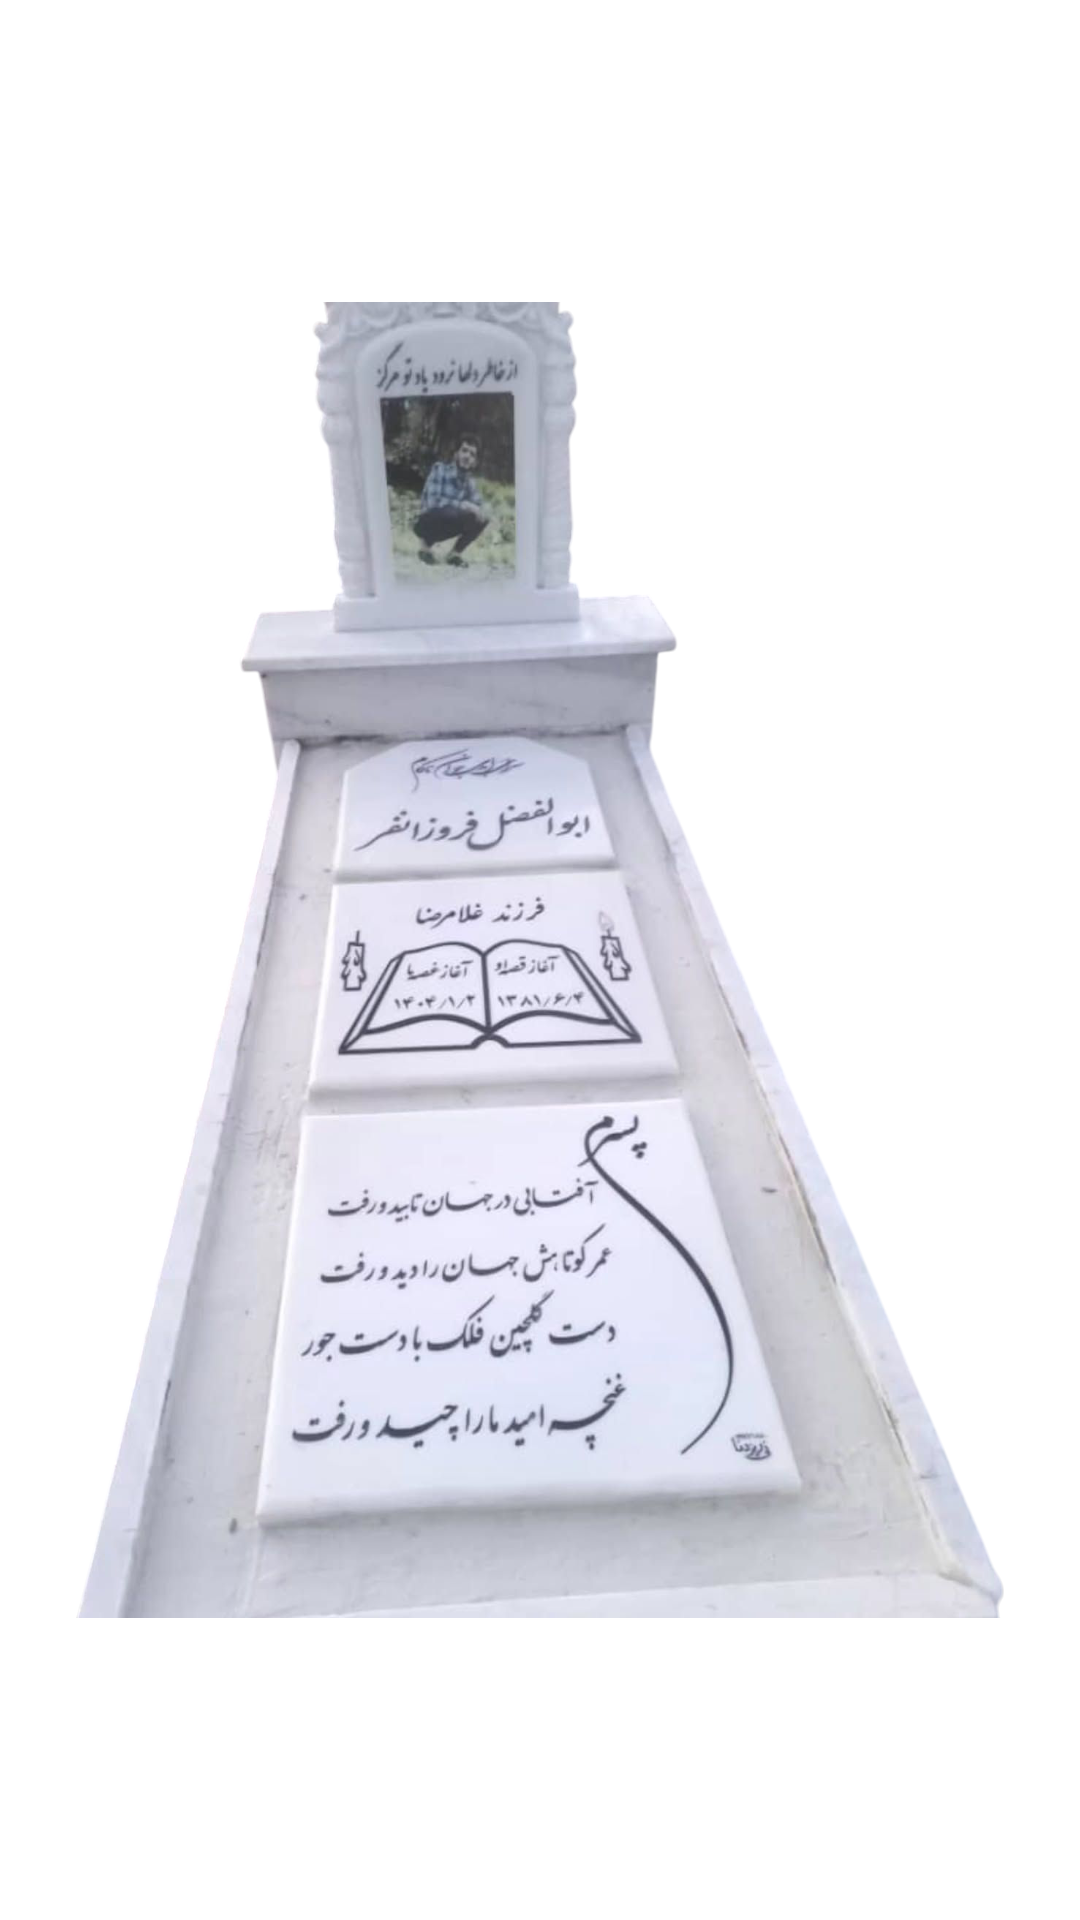 از خاطر دلها نرود یاد تو هرگز
آرامگاه جوان ناکام
ابوالفضل فروزانفر
فرزند غلامرضا
آغاز قصه او
۱۳۸۱/۶/۴
آغاز غصه ما
۱۴۰۴/۱/۲
پسرم
آفتابی در جهان تابید و رفت
عمر کوتاهش جهان را دید و رفت
دست گلچین فلک با دست جور
غنچه امید ما را چید و رفت